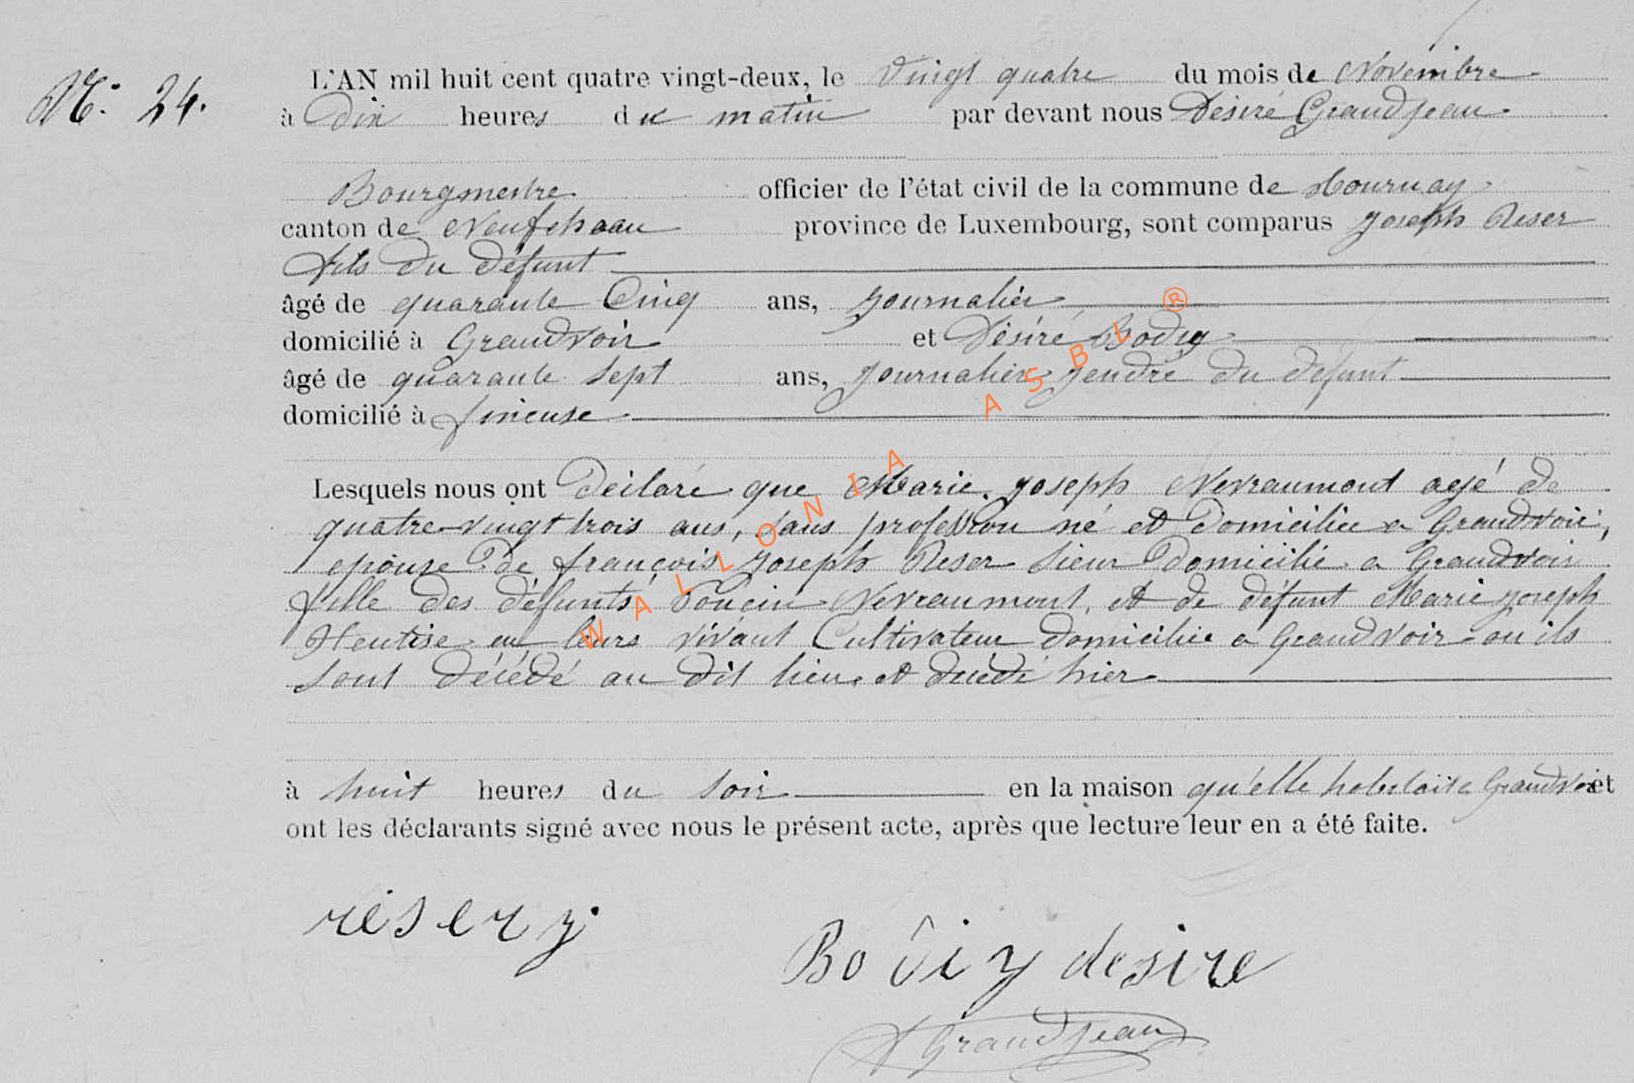 N.° 24.
L'AN mil huit cent quatre vingt-deux, le vingt quatre du mois de Novembre
à Dix heures du matin par devant nous Désiré Grandjean
Bourgmestre officier de l'état civil de la commune de Tournay
canton de Neufchateau province de Luxembourg, sont comparus Joseph Reser
fils du défunt
âgé de quarante Cinq ans, journalier
domicilié à Grandvoir et Désiré Bodvy
âgé de quarante sept ans, journalier gendre du défunt
domicilié à fineuse
Lesquels nous ont Déclaré que Marie Joseph Nevraumont agé de
quatre-vingt trois ans, sans profession né et Domiciliée a Grandvoir,
epouse de françois Joseph Reser Sieur Domicilié a Grandvoir
fille des défunts Nevraumont, et de défunt Marie joseph
en leurs vivant Cultivateur domiciliée a Grandvoir ou ils
sont décédé au dit lieu et décédé hier
à huit heures du soir en la maison qu'elle habitait a Grandvoir et
ont les déclarants signé avec nous le présent acte, après que lecture leur en a été faite.
reser j.
Bovîy desire
Grandjean
WALLONIA ASBL ®